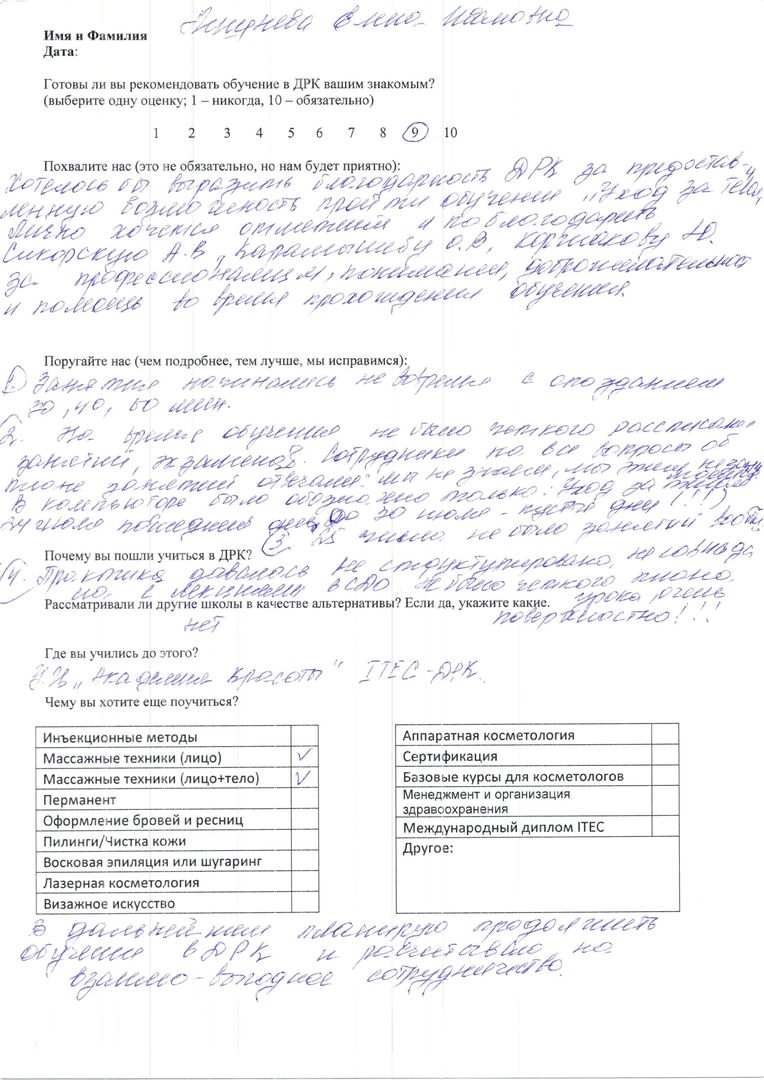 Имя и Фамилия Елена Ивановна
Дата:
Готовы ли вы рекомендовать обучение в ДРК вашим знакомым?
(выберите одну оценку; 1 – никогда, 10 – обязательно)
1 2 3 4 5 6 7 8 9 10
Похвалите нас (это не обязательно, но нам будет приятно):
Хотелось бы выразить благодарность ДРК за предостав-
ленную возможность пройти обучение "Уход за телом"
Лично хочется отметить и поблагодарить
Сикорскую А.В., Карамышеву О.В, Коршакову Ю.
за профессионализм, понимание, доброжелательность
и помощь во время прохождения обучения.
Поругайте нас (чем подробнее, тем лучше, мы исправимся):
1. Занятия начинались не вовремя с опозданием
30, 40, 60 мин.
2. На время обучения не было четкого расписания
занятий, экзаменов. Сотрудники на все вопросы об
занятий отвечали: мы не знаем, мы
В компьютере было обозначено только: Уход за
24 июля последний день, до 30 июля - пустые дни!!!
3. 25 число не было занятий вообще
Почему вы пошли учиться в ДРК?
4. Практика давалась не структурировано, не совпада
ла с лекциями всё не было четкого плана
урока, очень
Рассматривали ли другие школы в качестве альтернативы? Если да, укажите какие.
поверхностно!!!
нет
Где вы учились до этого?
"Академия Красоты" ITEC-ДРК.
Чему вы хотите еще поучиться?
Инъекционные методы
Массажные техники (лицо) ✓
Массажные техники (лицо+тело) ✓
Перманент
Оформление бровей и ресниц
Пилинги/Чистка кожи
Восковая эпиляция или шугаринг
Лазерная косметология
Визажное искусство
Аппаратная косметология
Сертификация
Базовые курсы для косметологов
Менеджмент и организация
здравоохранения
Международный диплом ITEC
Другое:
В дальнейшем планирую продолжить
обучение в ДРК и рассчитываю на
взаимо-выгодное сотрудничество.